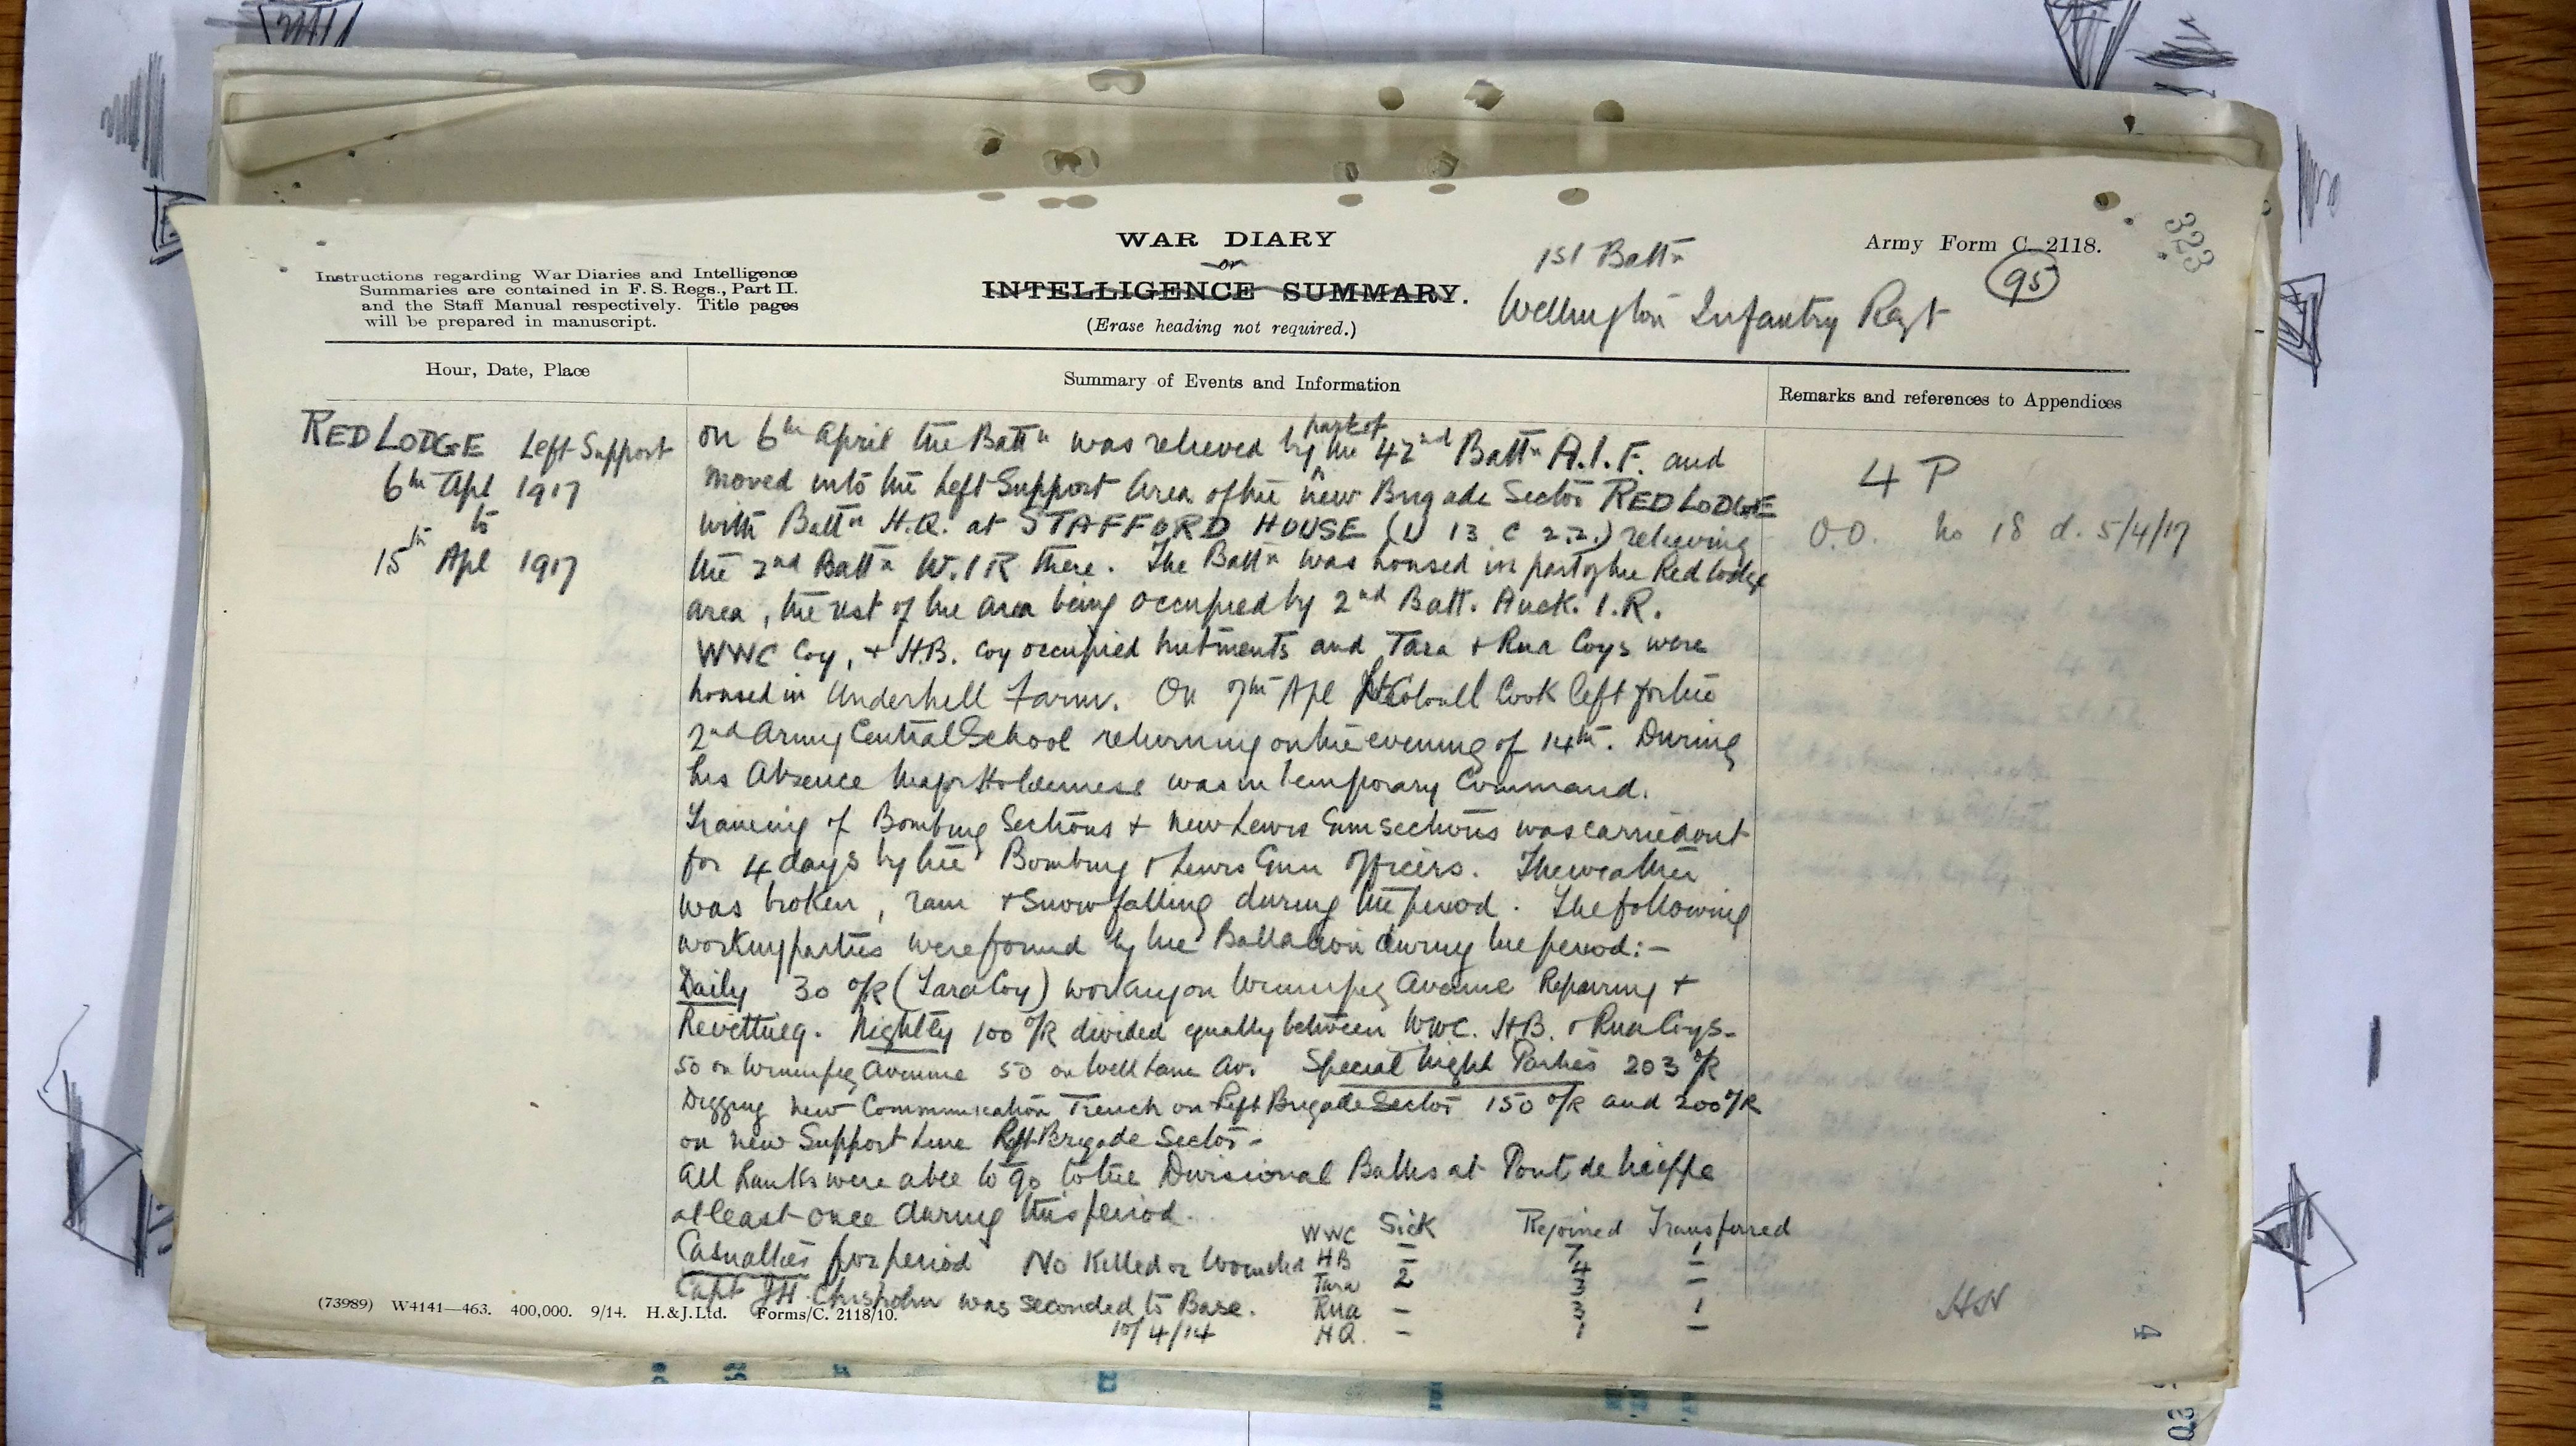 323
WAR DIARY
or
INTELLIGENCE SUMMARY.
(Erase heading not required.)
Instructions regarding War Diaries and Intelligence
Summaries are contained in F. S. Regs., Part II.
and the Staff Manual respectively. Title pages
will be prepared in manuscript.
1st Battn
Wellington Infantry Regt
Army Form C. 2118.
95
Hour, Date, Place
Summary of Events and Information
Remarks and references to Appendices
RED LODGE Left Support
6th Apl 1917
to
15th Apl 1917
on 6th April the Battn was relieved by part of the 42nd Battn A.I.F. and
moved into the Left Support Area of the new Brigade Sector RED LODGE
with Battn H.Q. at STAFFORD HOUSE (U 13 C 2.2.) relieving
the 2nd Battn W.I R there. The Battn was housed in part of the Red Lodge
area, the rest of the area being occupied by 2nd Batt. Auck. I.R.
WWC Coy, + H.B. Coy occupied hutments and Tara + Rua Coys were
housed in Underhill Farm. On 7th Apl Lt Colonel Cook left for the
2nd Army Central School returning on the evening of 14th. During
his Absence Major Holderness was in temporary Command.
Training of Bombing Sections + new Lewis Gun sections was carried out
for 4 days by the Bombing + Lewis Gun Officers. The weather
was broken, rain + Snow falling during the period. The following
working parties were found by the Battalion during the period:-
Daily 30 O/R (Tara Coy) working on Winnipeg Avenue Repairing +
Revetting. Nightly 100 O/R divided equally between WWC. H.B. + Rua Coys.
50 on Winnipeg Avenue 50 on Well Lane Av. Special Night Parties 203 O/R
Digging new Communication Trench on Left Brigade Sector 150 O/R and 200 O/R
on new Support Line Brigade Sector.
All Ranks were able to go to the Divisional Baths at Pont de Nieppe
at least once during this period.
Casualties for period No Killed or Wounded
Capt J.H. was seconded to Base.
10/4/14
Sick Rejoined Transferred
WWC – 7 1
HB – 4 –
Tara 2 3 –
Rua – 3 1
HQ. – 1 –
4 P
O.O. No 18 d. 5/4/17
(73989) W4141—463. 400,000. 9/14. H.&J.Ltd. Forms/C. 2118/10.
4